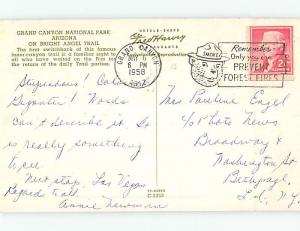 GRAND CANYON NATIONAL PARK
ARIZONA
ON BRIGHT ANGEL TRAIL
The first switchback of this famous
inner-canyon trail is a familiar sight to
all who have waited on the rim for
the return of the daily Trail parties.
Fred Harvey
GRAND CANYON
6 PM
1958
ARIZ
SMOKEY
Remember-
Only you can
PREVENT
FOREST FIRES!
2¢
Stupendous! Colossal
Gigantic! Words
Can't describe it. So
is really something
to see.
Next stop, Las Vegas
Regards to all,
Annie Newman
Mrs Pauline Engel
c/o Photo News
Broadway &
Washington St
Bethpage,
L.I., N.Y.